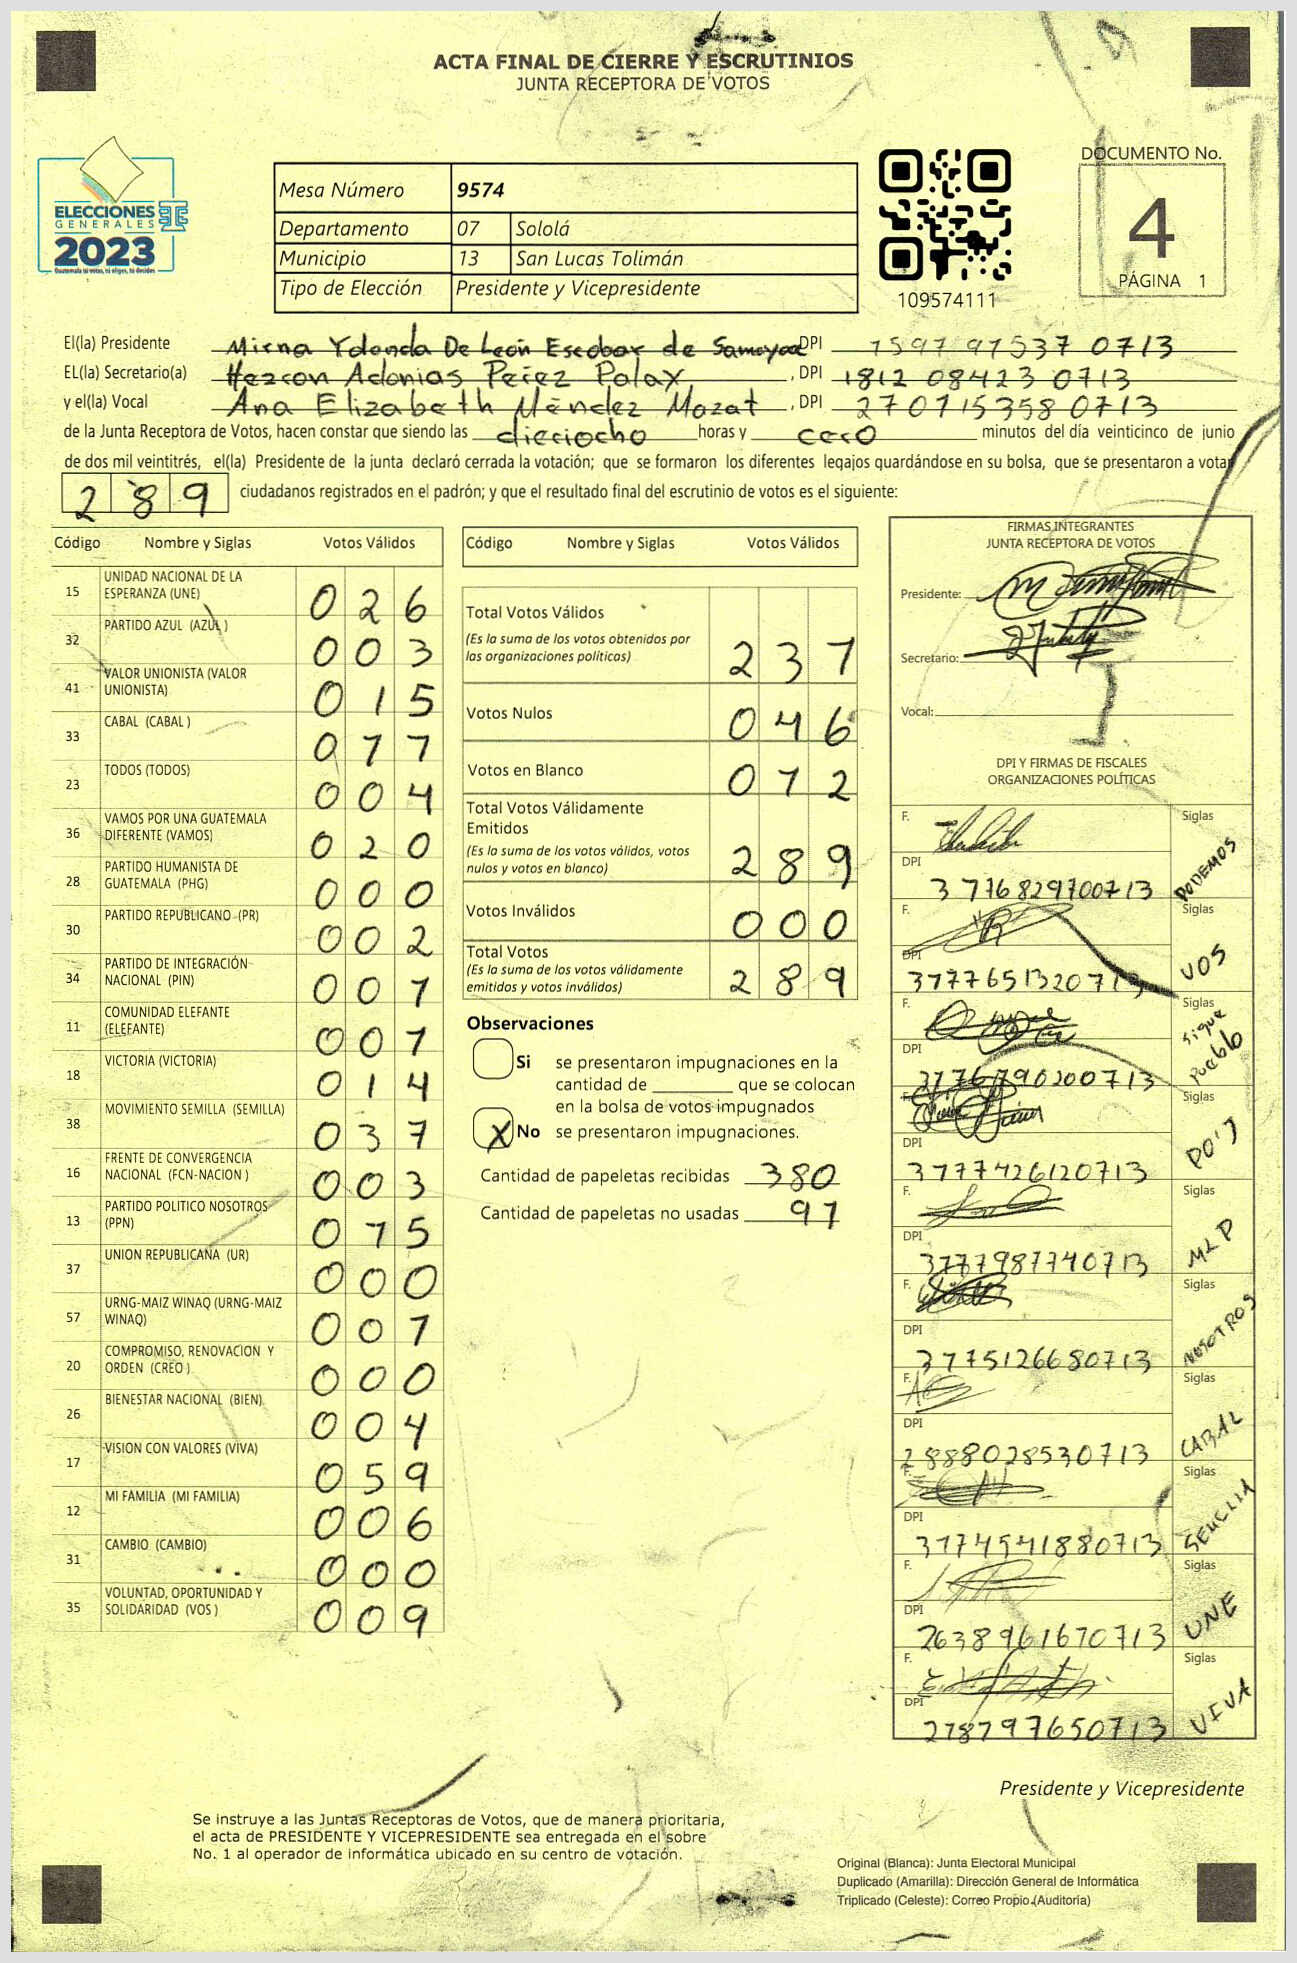 ACTA FINAL DE CIERRE Y ESCRUTINIOS
JUNTA RECEPTORA DE VOTOS
ELECCIONES
GENERALES
2023
Guatemala tú votas, tú eliges, tú decides
Mesa Número 9574
Departamento 07 Sololá
Municipio 13 San Lucas Tolimán
Tipo de Elección Presidente y Vicepresidente
109574111
DOCUMENTO No.
4
PÁGINA 1
El(la) Presidente Mirna Yolanda De León Escobar de Samayoa DPI 1597 97537 0713
EL(la) Secretario(a) Hezron Adonias Perez Palax, DPI 1812 08423 0713
y el(la) Vocal Ana Elizabeth Méndez Mozat, DPI 2707153580713
de la Junta Receptora de Votos, hacen constar que siendo las dieciocho horas y cero minutos del día veinticinco de junio
de dos mil veintitrés, el(la) Presidente de la junta declaró cerrada la votación; que se formaron los diferentes legajos quardándose en su bolsa, que se presentaron a votar
289 ciudadanos registrados en el padrón; y que el resultado final del escrutinio de votos es el siguiente:
Código Nombre y Siglas Votos Válidos
15 UNIDAD NACIONAL DE LA ESPERANZA (UNE) 026
32 PARTIDO AZUL (AZUL ) 003
41 VALOR UNIONISTA (VALOR UNIONISTA) 015
33 CABAL (CABAL ) 077
23 TODOS (TODOS) 004
36 VAMOS POR UNA GUATEMALA DIFERENTE (VAMOS) 020
28 PARTIDO HUMANISTA DE GUATEMALA (PHG) 000
30 PARTIDO REPUBLICANO (PR) 002
34 PARTIDO DE INTEGRACIÓN NACIONAL (PIN) 007
11 COMUNIDAD ELEFANTE (ELEFANTE) 007
18 VICTORIA (VICTORIA) 014
38 MOVIMIENTO SEMILLA (SEMILLA) 037
16 FRENTE DE CONVERGENCIA NACIONAL (FCN-NACION ) 003
13 PARTIDO POLITICO NOSOTROS (PPN) 075
37 UNION REPUBLICANA (UR) 000
57 URNG-MAIZ WINAQ (URNG-MAIZ WINAQ) 007
20 COMPROMISO, RENOVACION Y ORDEN (CREO ) 000
26 BIENESTAR NACIONAL (BIEN) 004
17 VISION CON VALORES (VIVA) 059
12 MI FAMILIA (MI FAMILIA) 006
31 CAMBIO (CAMBIO) 000
35 VOLUNTAD, OPORTUNIDAD Y SOLIDARIDAD (VOS ) 009
Código Nombre y Siglas Votos Válidos
Total Votos Válidos 237
(Es la suma de los votos obtenidos por
las organizaciones políticas)
Votos Nulos 046
Votos en Blanco 012
Total Votos Válidamente
Emitidos
(Es la suma de los votos válidos, votos
nulos y votos en blanco) 289
Votos Inválidos 000
Total Votos
(Es la suma de los votos válidamente
emitidos y votos inválidos) 289
Observaciones
Si se presentaron impugnaciones en la
cantidad de ________ que se colocan
en la bolsa de votos impugnados
X No se presentaron impugnaciones.
Cantidad de papeletas recibidas 380
Cantidad de papeletas no usadas 97
FIRMAS INTEGRANTES
JUNTA RECEPTORA DE VOTOS
Presidente:
Secretario:
Vocal:
DPI Y FIRMAS DE FISCALES
ORGANIZACIONES POLÍTICAS
F. Siglas
DPI PODEMOS
3776829700713
F. Siglas
DPI VOS
3777651320713
F. Siglas
DPI Sigue Pueblo
3776790200713
F. Siglas
DPI
3777426120713
F. Siglas
DPI MLP
3777987740713
F. Siglas
DPI NOSOTROS
3775126680713
F. Siglas
DPI CABAL
2888028530713
F. Siglas
DPI
3774541880713
F. Siglas
DPI UNE
2638961670713
F. Siglas
DPI VIVA
278797650713
Presidente y Vicepresidente
Se instruye a las Juntas Receptoras de Votos, que de manera prioritaria,
el acta de PRESIDENTE Y VICEPRESIDENTE sea entregada en el sobre
No. 1 al operador de informática ubicado en su centro de votación.
Original (Blanca): Junta Electoral Municipal
Duplicado (Amarilla): Dirección General de Informática
Triplicado (Celeste): Correo Propio (Auditoría)